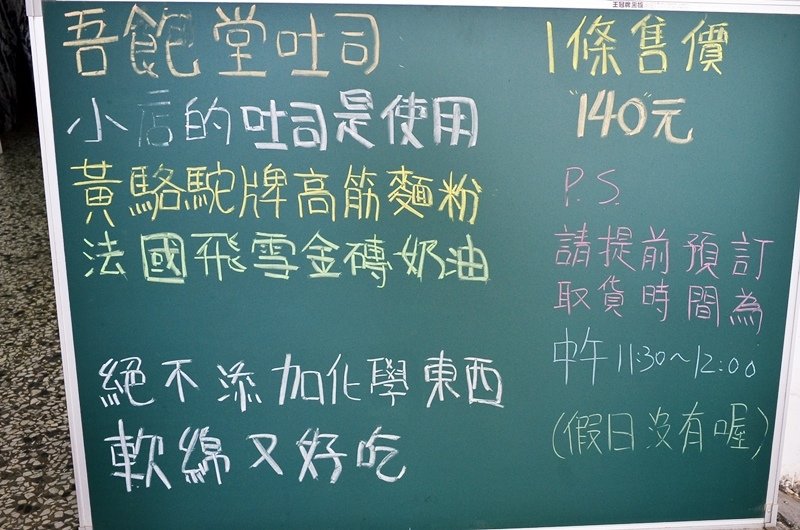 吾飽堂吐司
小店的吐司是使用
黃駱駝牌高筋麵粉
法國飛雪金磚奶油
絕不添加化學東西
軟綿又好吃
1條售價
"140"元
P.S.
請提前預訂
取貨時間為
中午11:30~12:00
(假日沒有喔)